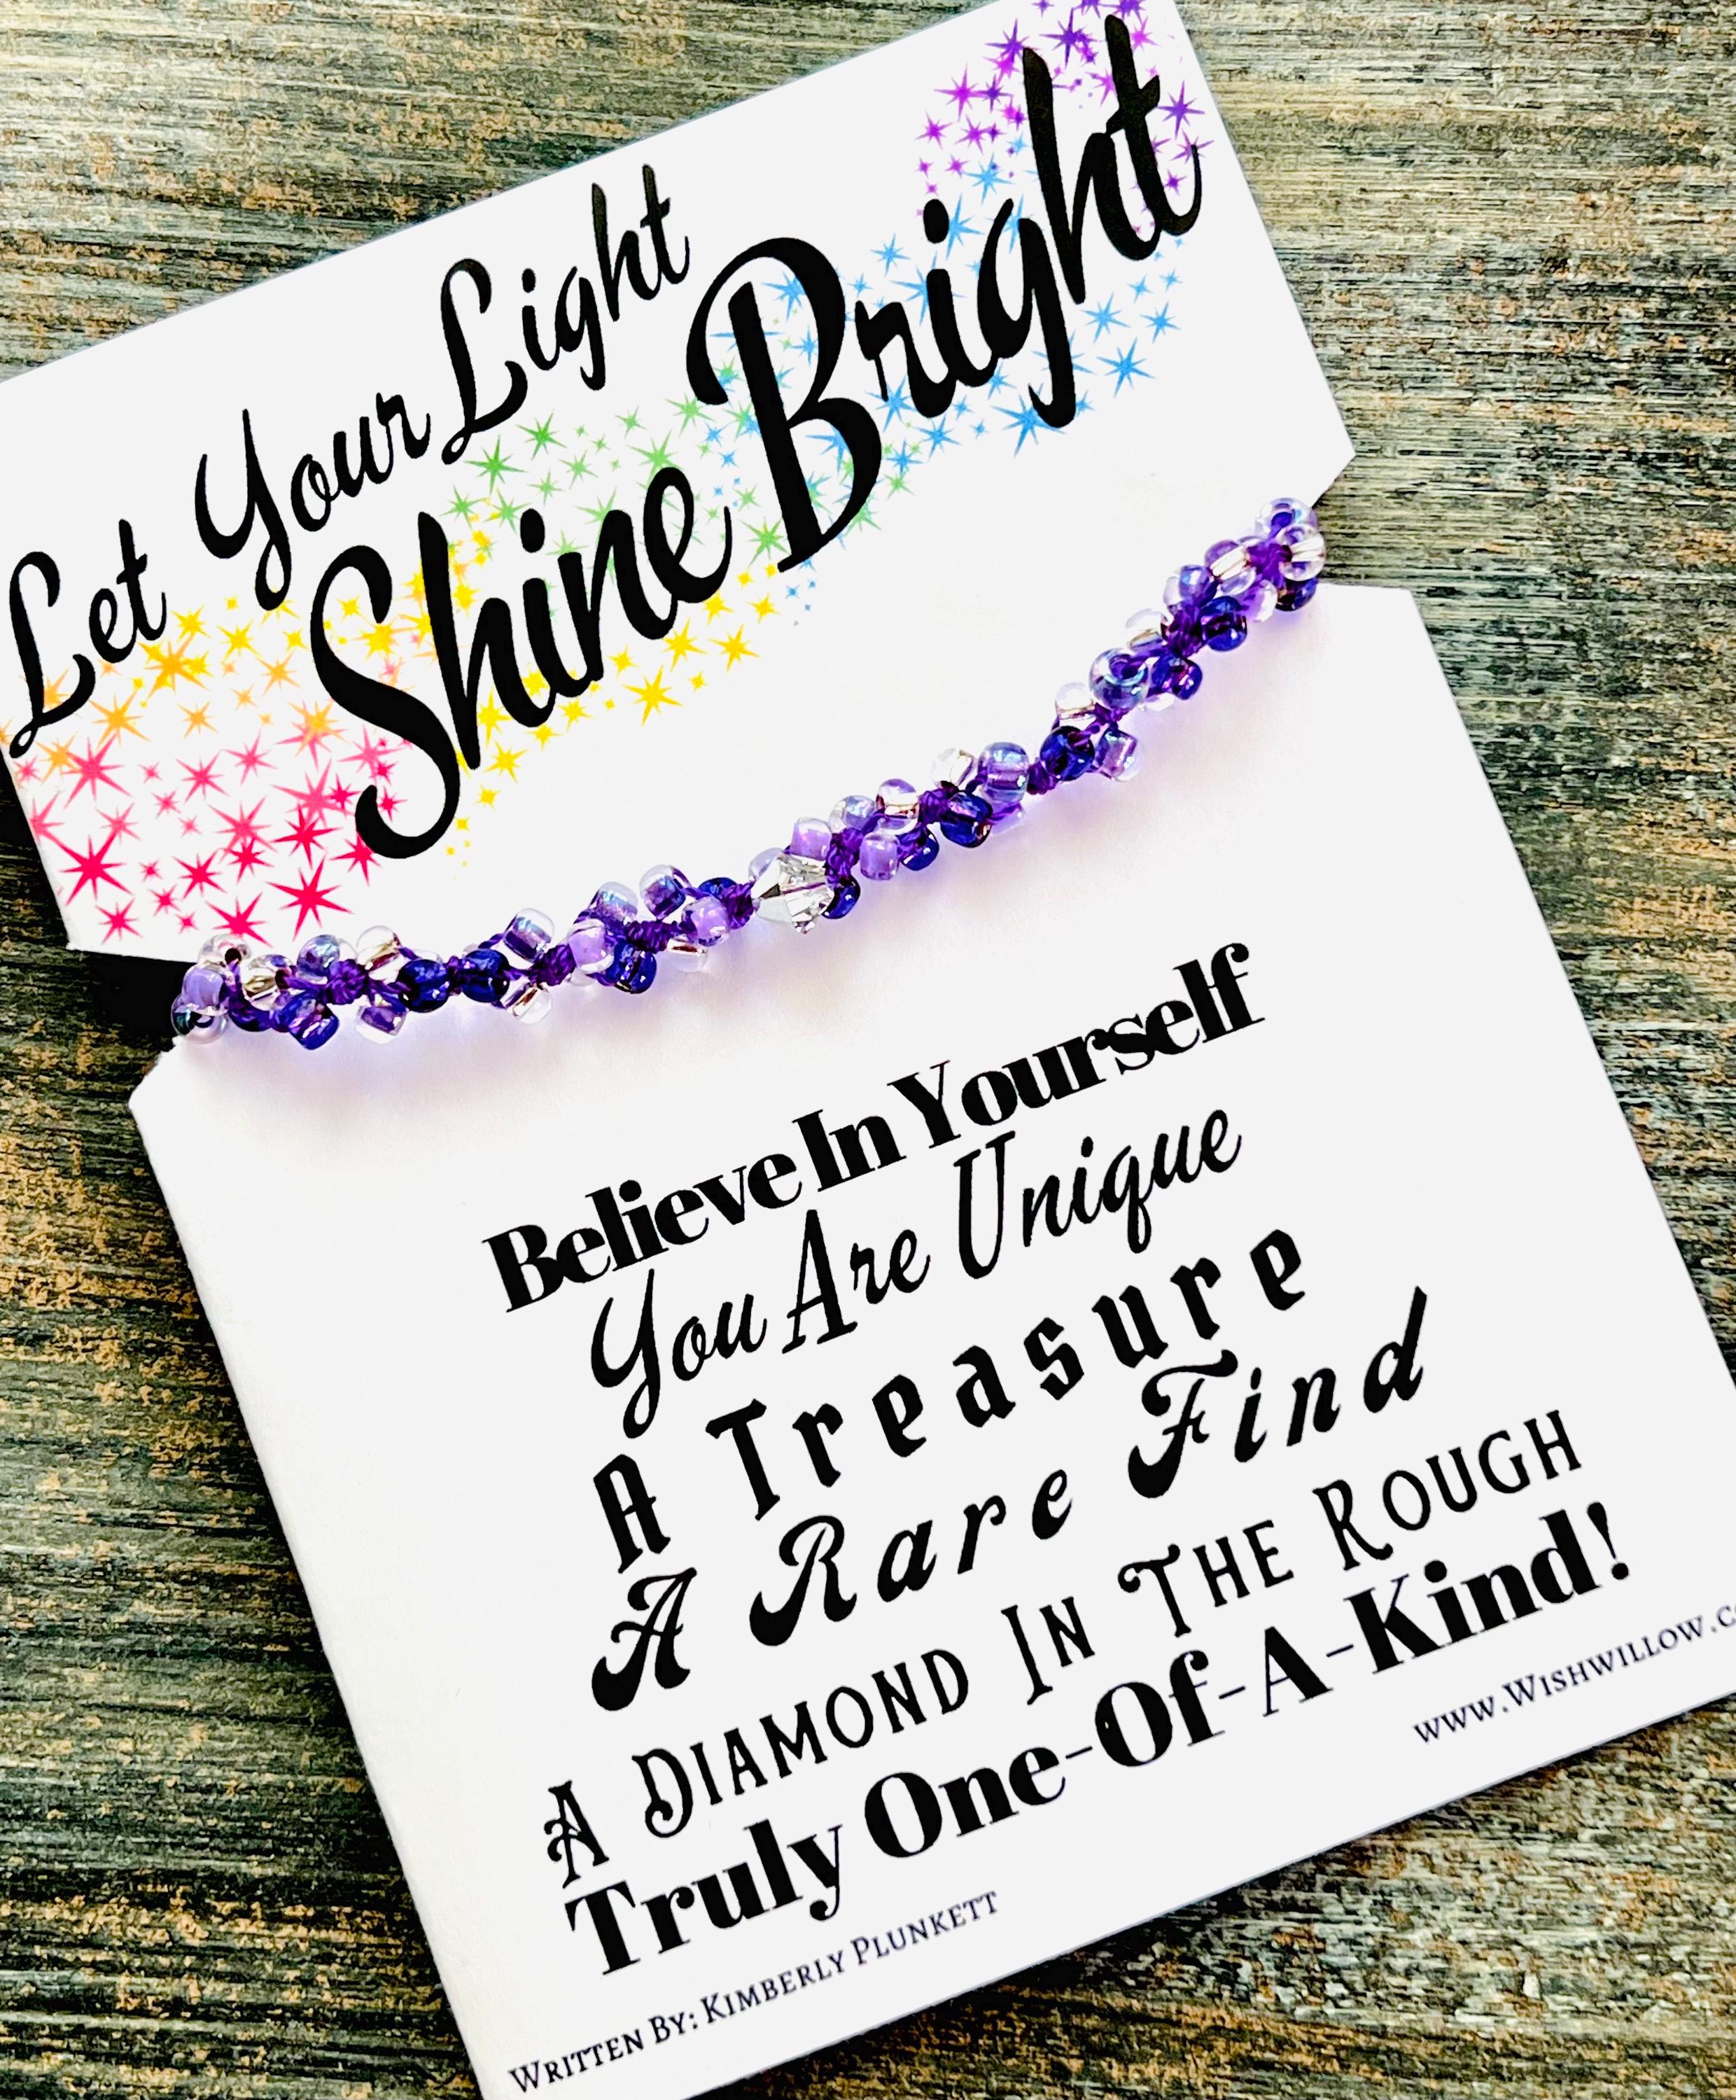 Let Your Light
Shine Bright
Believe In Yourself
You Are Unique
A Treasure
A Rare Find
A Diamond In The Rough
Truly One-Of-A-Kind!
www.Wishwillow.c
Written By: Kimberly Plunkett